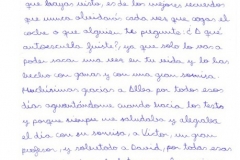 que hayas visto, es de los mejores recuerdos
que nunca olvidarán cada vez que cogan el
coche o que alguien. Me pregunte: ¿A qué
autoescuela fuiste?, ya que solo lo vas a
poder sacar una vez en tu vida y lo has
hecho con ganas y con una gran sonrisa.
Muchísimas gracias a Alba por todos esos
días aguantándome cuando hacía los tests
y porque siempre me saludaba y alegraba
el día con su sonrisa, a Victor, un gran
profesor, y sobretodo a David, por todas esas